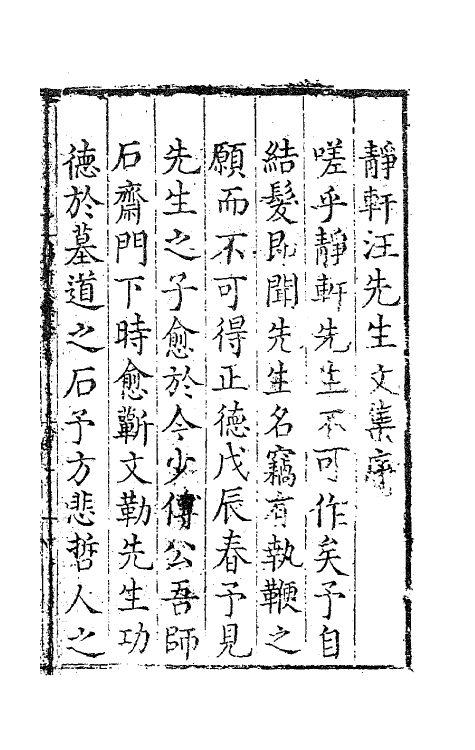 靜軒汪先生文集序
嗟乎靜軒先生不可作矣予自
結髮即聞先生名竊有執鞭之
願而不可得正德戊辰春予見
先生之子愈於今少傅公吾師
石齋門下時愈蘄文勒先生功
德於墓道之石予方悲哲人之